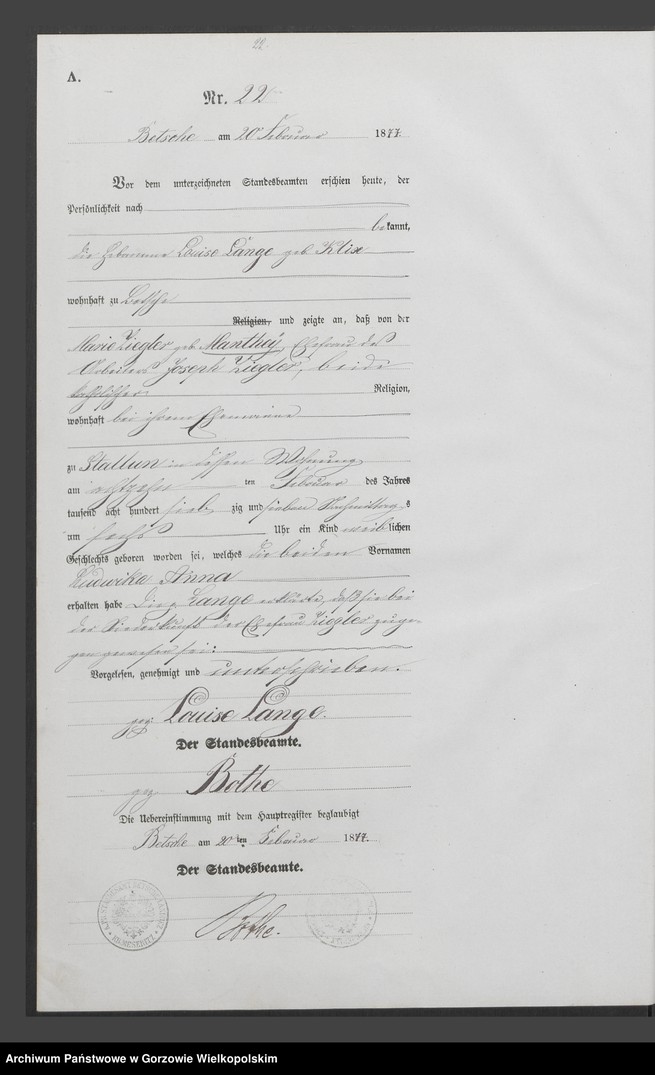 22
A.
Nr. 22
Betsche am 20 Februar 1877
Vor dem unterzeichneten Standesbeamten erschien heute, der
Persönlichkeit nach
bekannt,
die Hebamme Louise Lange geb. Klix
wohnhaft zu Betsche
Religion, und zeigte an, daß von der
Marie Ziegler geb. Manthey, Ehefrau des
Arbeiters Joseph Ziegler, beide
katholischer Religion,
wohnhaft bei ihrem Ehemanne
zu Stallun in dessen Wohnung
am achtzehnten Februar des Jahres
tausend acht hundert siebzig und sieben Nachmittags
um sechs Uhr ein Kind weiblichen
Geschlechts geboren worden sei, welches die beiden Vornamen
Ludwika Anna
erhalten habe. Die p. Lange erklärte, daß sie bei
der Niederkunft der Ehefrau Ziegler zuge-
gen gewesen sei:
Vorgelesen, genehmigt und unterschrieben.
gez. Louise Lange.
Der Standesbeamte.
gez. Bothe
Die Uebereinstimmung mit dem Hauptregister beglaubigt
Betsche am 20ten Februar 1877.
Der Standesbeamte.
Bothe.
Archiwum Państwowe w Gorzowie Wielkopolskim